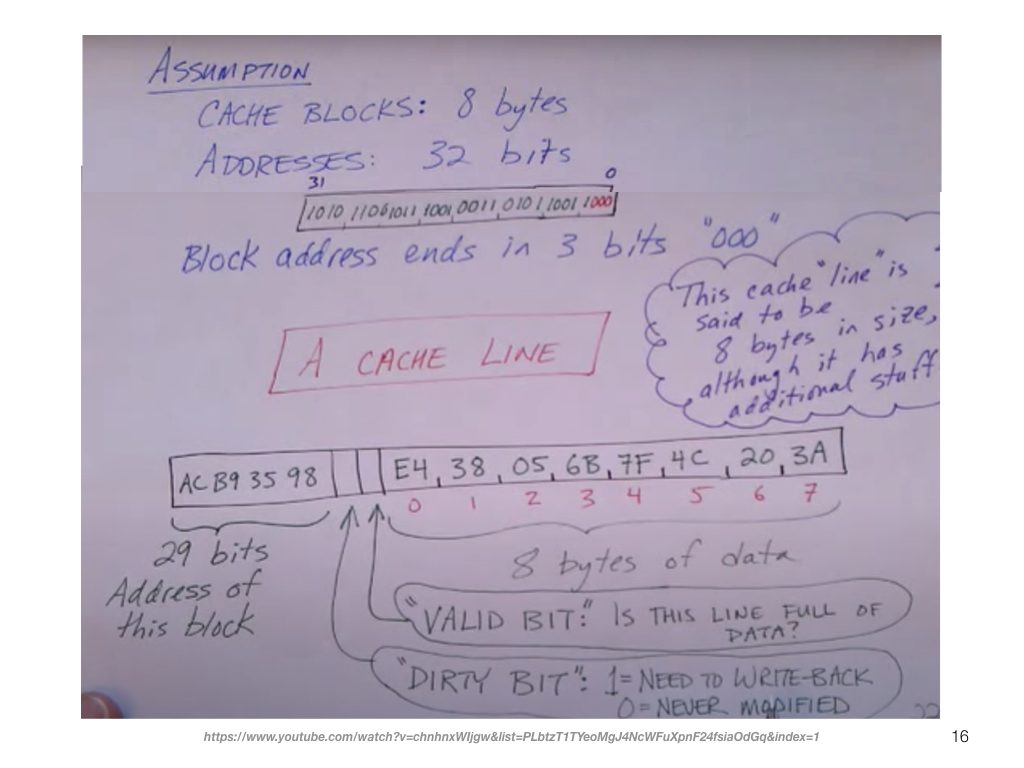 ASSUMPTION
CACHE BLOCKS: 8 bytes
ADDRESSES: 32 bits
31 0
1010 1100 1011 1001 0011 0101 1001 1000
Block address ends in 3 bits "000"
This cache "line" is
said to be
8 bytes in size,
although it has
additional stuff
A CACHE LINE
AC B9 35 98 E4, 38, 05, 6B, 7F, 4C, 20, 3A
0 1 2 3 4 5 6 7
29 bits
Address of
this block
8 bytes of data
"VALID BIT:" IS THIS LINE FULL OF
DATA?
"DIRTY BIT": 1=NEED TO WRITE-BACK
0=NEVER MODIFIED
22
https://www.youtube.com/watch?v=chnhnxWIjgw&list=PLbtzT1TYeoMgJ4NcWFuXpnF24fsiaOdGq&index=1
16